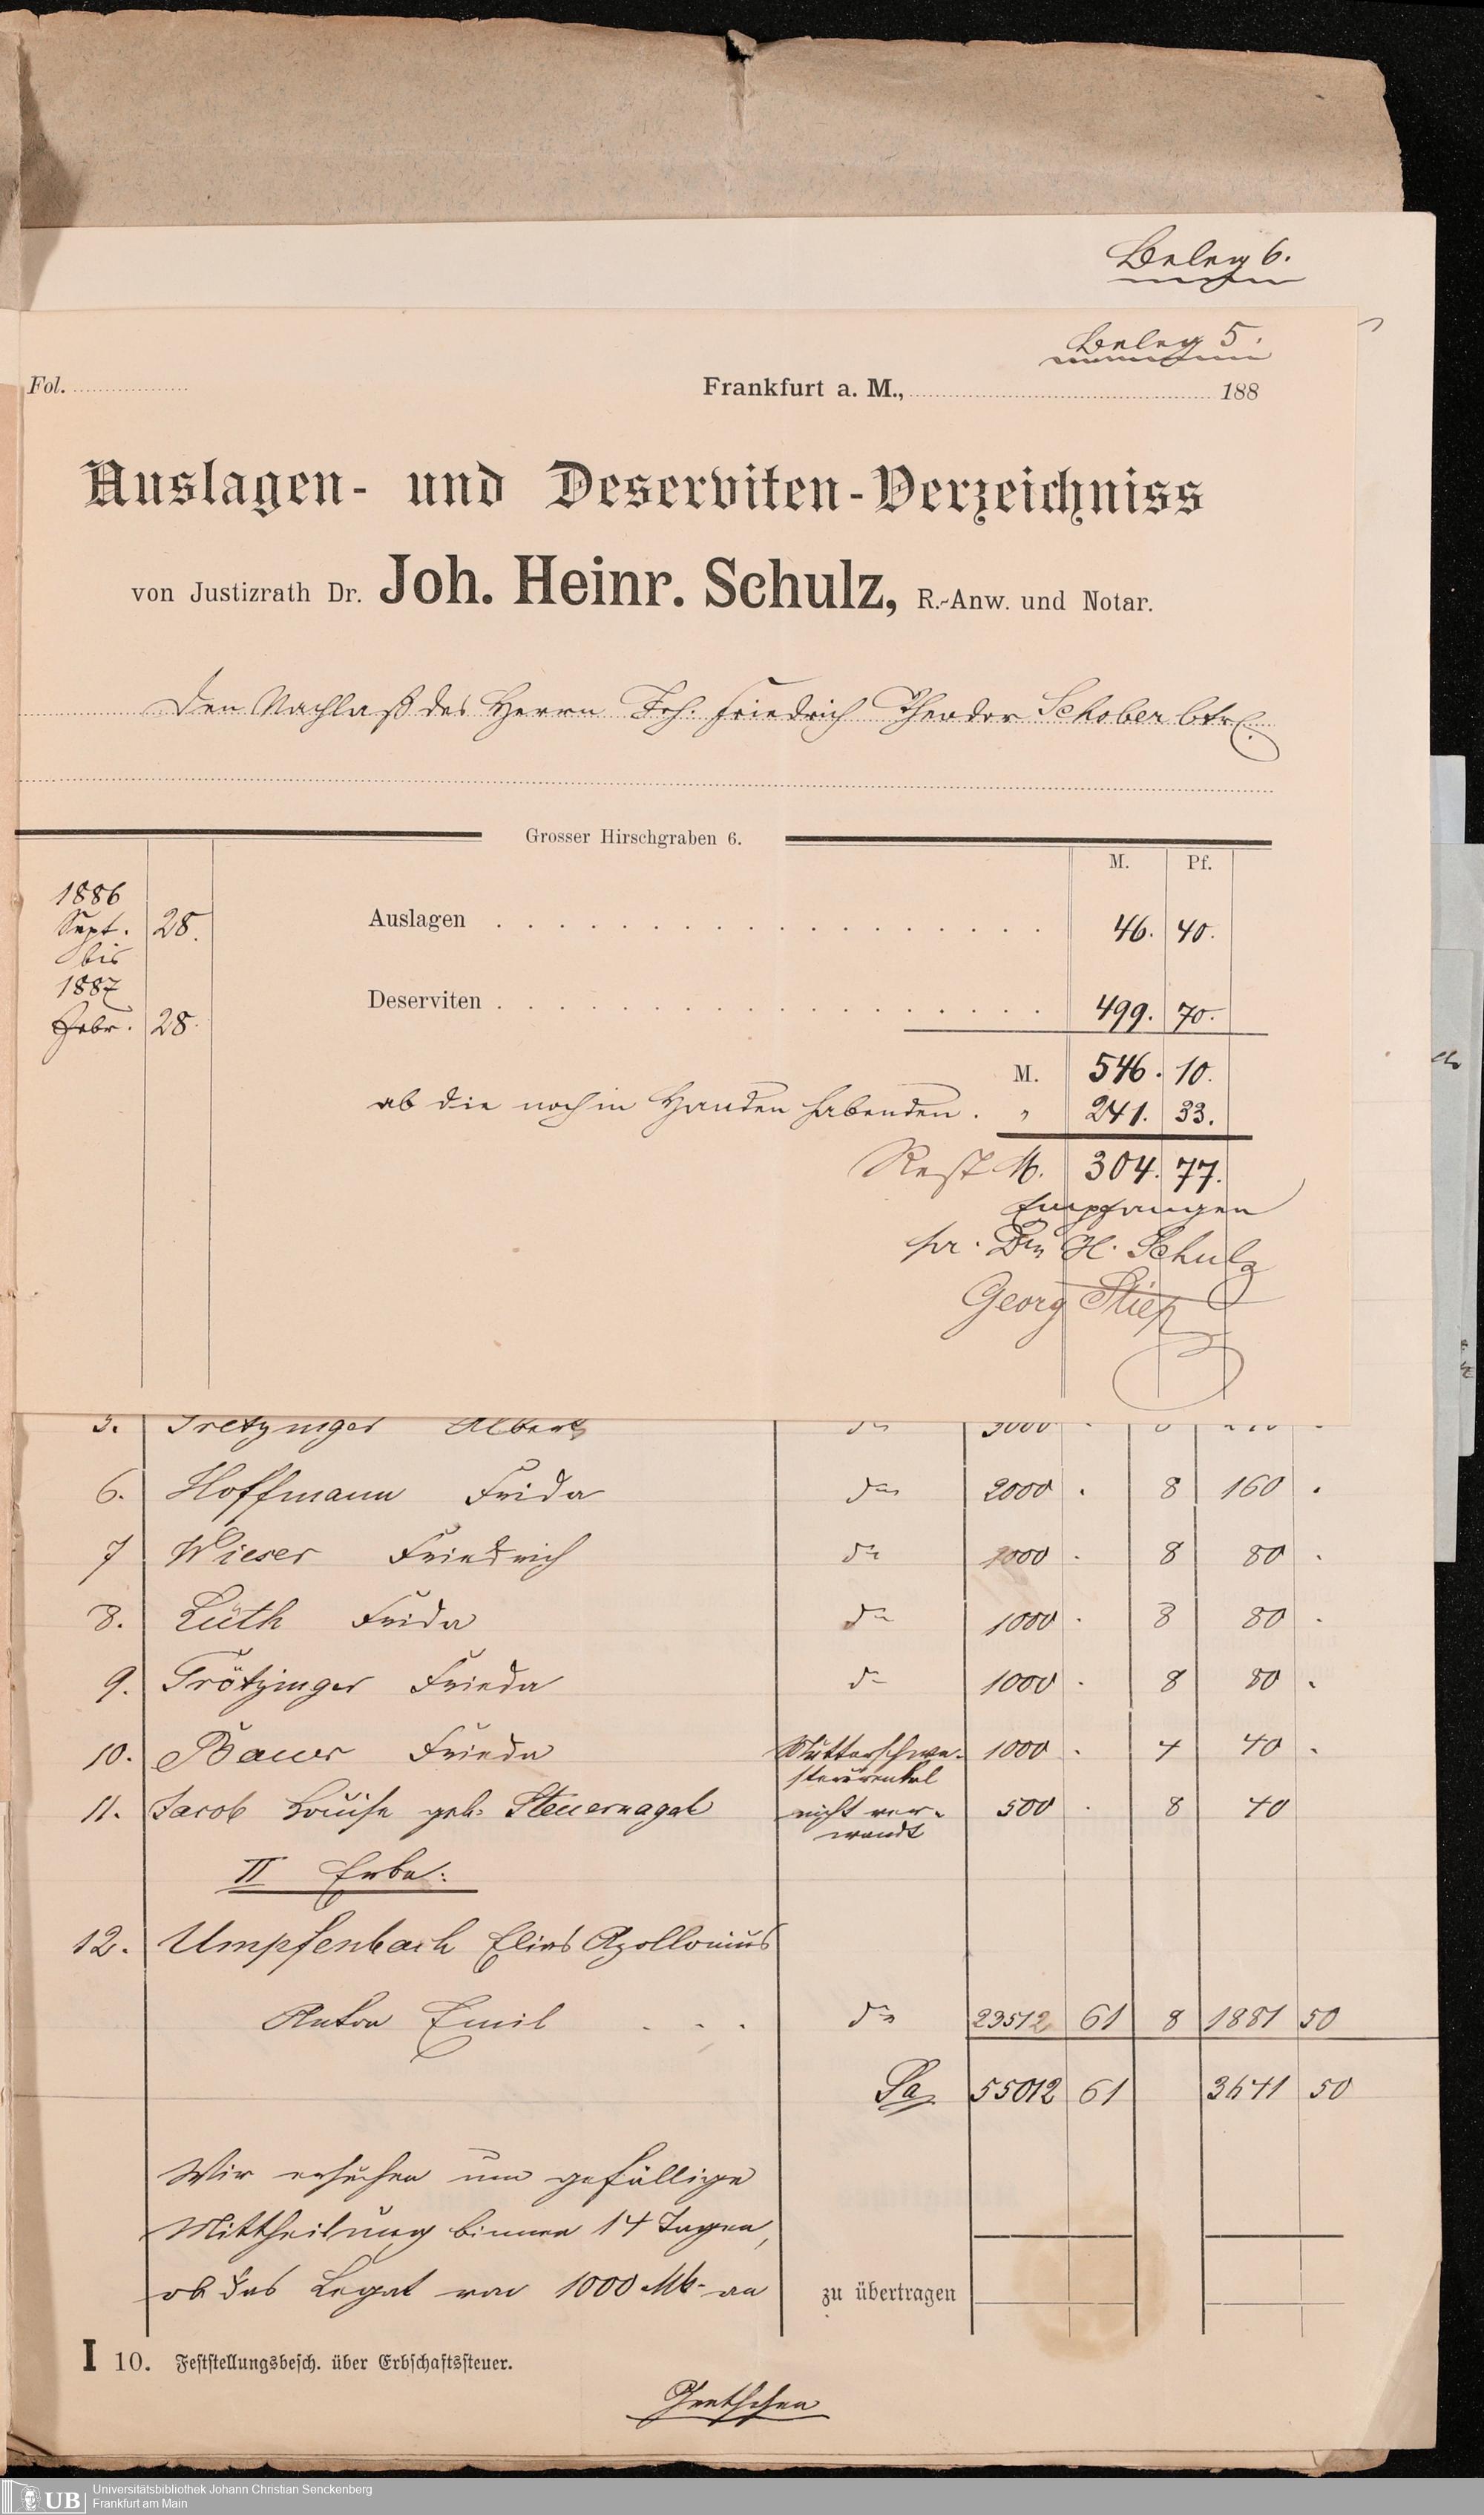 Beleg 6.
Beleg 5.
Fol. Frankfurt a. M., 188
Auslagen- und Deserviten-Verzeichniss
von Justizrath Dr. Joh. Heinr. Schulz, R.-Anw. und Notar.
Den Nachlaß des Herrn Joh. Friedrich Theodor Schober betr.
Grosser Hirschgraben 6.
M. Pf.
1886
Sept. 28. Auslagen 46. 40.
bis
1887
Febr. 28. Deserviten 499. 70.
M. 546. 10.
ab die noch in Handen habenden. " 241. 33.
Rest M. 304. 77.
Empfangen
pr. Dr H. Schulz
Georg
5. Tretzinger Albert do 3000
6. Hoffmann Frida do 2000 . 8 160 .
7 Wieser Friedrich do 1000 . 8 80 .
8. Lüth Frida do 1000 . 8 80 .
9. Trötzinger Frieda do 1000 . 8 80 .
10. Bauer Frieda Mutterschwe- 1000 . 4 40 .
sterurenkel
11. Jacob Louise geb. Steuernagel nicht ver- 500 . 8 40
wandt
II Erbe:
12. Umpfenbach Elias Apollonius
Anton Emil . . . do 23512 61 8 1881 50
Sa 55012 61 3641 50
Wir ersuchen um gefällige
Mittheilung binnen 14 Tagen,
ob das Legat von 1000 Mk. an
zu übertragen
I 10. Feststellungsbesch. über Erbschaftssteuer.
UB Universitätsbibliothek Johann Christian Senckenberg
Frankfurt am Main